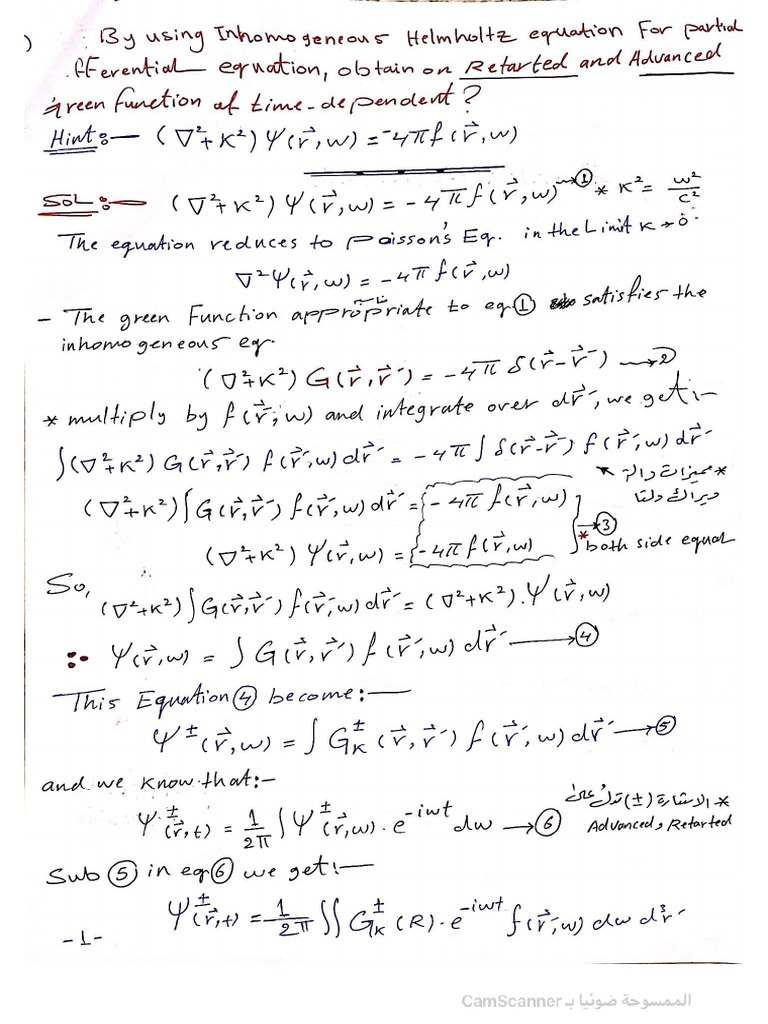 ) : By using Inhomogeneous Helmholtz equation For partial
fferential equation, obtain on Retarted and Advanced
green function of time-dependent?
Hint:- (∇²+K²) Ψ(r⃗,w) = -4πf(r⃗,w)
SOL:- (∇²+K²) Ψ(r⃗,w) = -4πf(r⃗,w) → ① * K² = w²/c²
The equation reduces to Poisson's Eq. in the Limit K→0.
∇²Ψ(r⃗,w) = -4πf(r⃗,w)
- The green Function appropriate to eq ① satisfies the
inhomogeneous eq.
(∇²+K²) G(r⃗,r⃗′) = -4π δ(r⃗-r⃗′) → 2
* multiply by f(r⃗′,w) and integrate over dr⃗′, we get:-
∫(∇²+K²) G(r⃗,r⃗′) f(r⃗′,w) dr⃗′ = -4π ∫ δ(r⃗-r⃗′) f(r⃗′,w) dr⃗′
* مميزات دالة
ديراك دلتا
(∇²+K²) ∫G(r⃗,r⃗′) f(r⃗′,w) dr⃗′ = {-4π f(r⃗,w)
(∇²+K²) Ψ(r⃗,w) = {-4π f(r⃗,w) } → ③
* both side equal
So,
(∇²+K²) ∫G(r⃗,r⃗′) f(r⃗′,w) dr⃗′ = (∇²+K²). Ψ(r⃗,w)
:- Ψ(r⃗,w) = ∫ G(r⃗,r⃗′) f(r⃗′,w) dr⃗′ → ④
This Equation ④ become:-
Ψ±(r⃗,w) = ∫ G±K (r⃗,r⃗′) f(r⃗′,w) dr⃗′ → ⑤
and we know that:-
* الاشارة (±) تدل على
Advanced و Retarted
Ψ±(r⃗,t) = 1/2π ∫Ψ±(r⃗,w). e^-iwt dw → ⑥
Sub ⑤ in eq ⑥ we get:-
Ψ±(r⃗,t) = 1/2π ∫∫ G±K (R). e^-iwt f(r⃗′,w) dw d³r′
-1-
الممسوحة ضوئيا بـ CamScanner